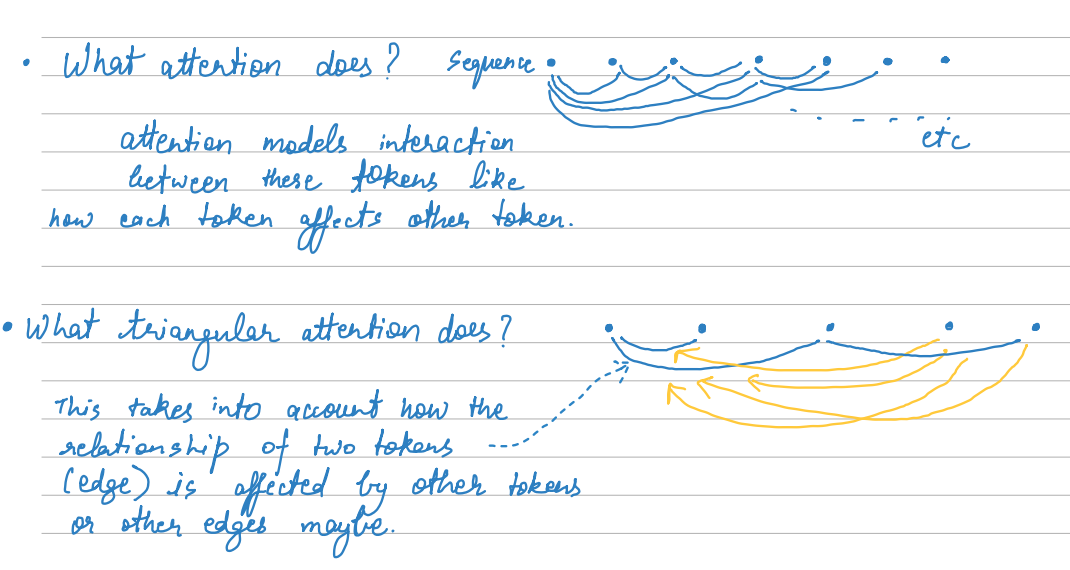 • What attention does? Sequence
etc
attention models interaction
between these tokens like
how each token affects other token.
• What triangular attention does?
This takes into account how the
relationship of two tokens
(edge) is affected by other tokens
or other edges maybe.